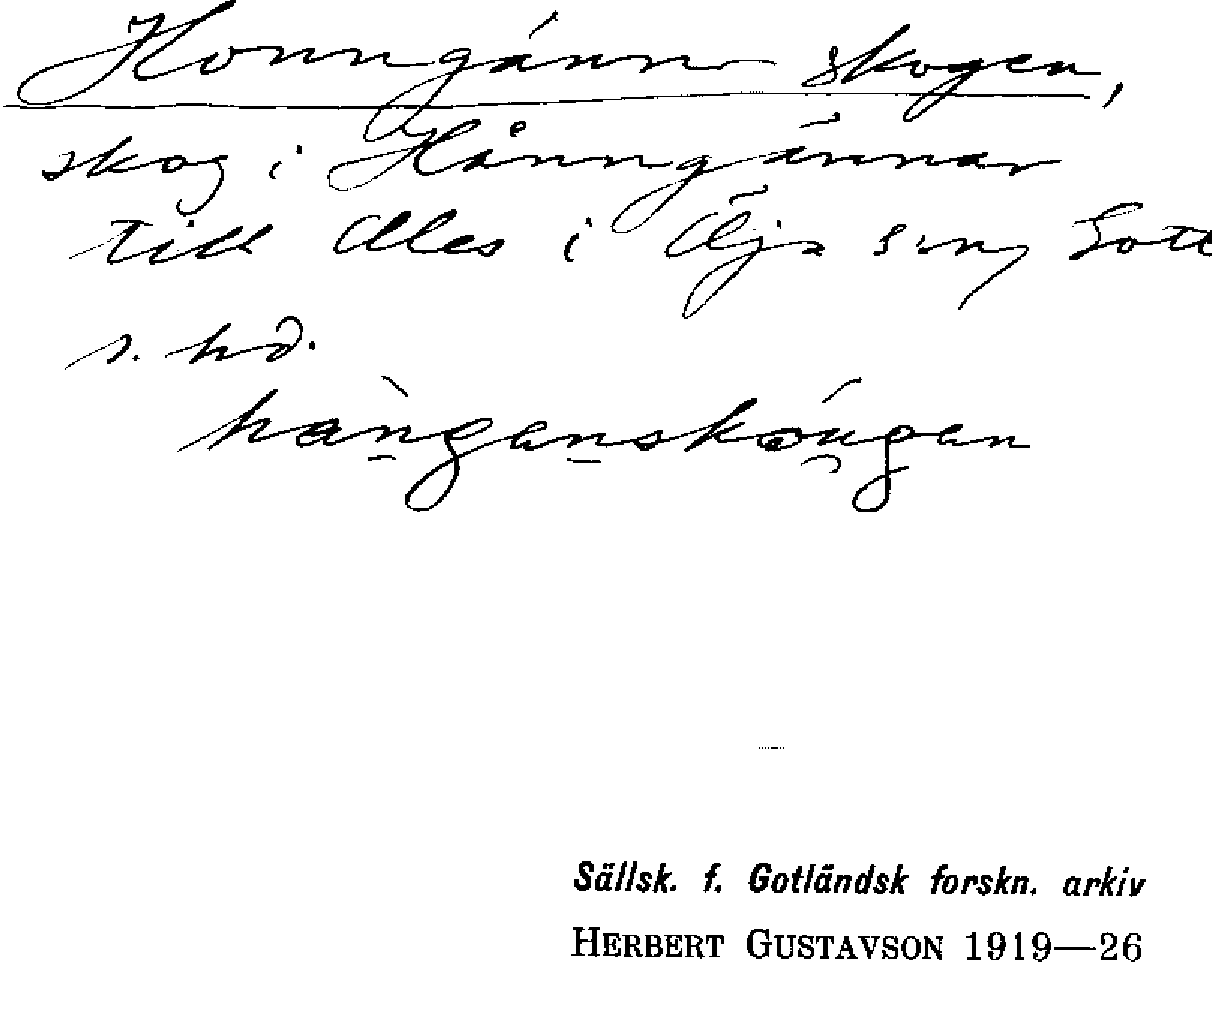 Honngánn skogen,
skog i Hånngännar
till Ales i Öja sn, Gotl
s. hd.
hang̀anskóugen
Sällsk. f. Gotländsk forskn. arkiv
HERBERT GUSTAVSON 1919—26